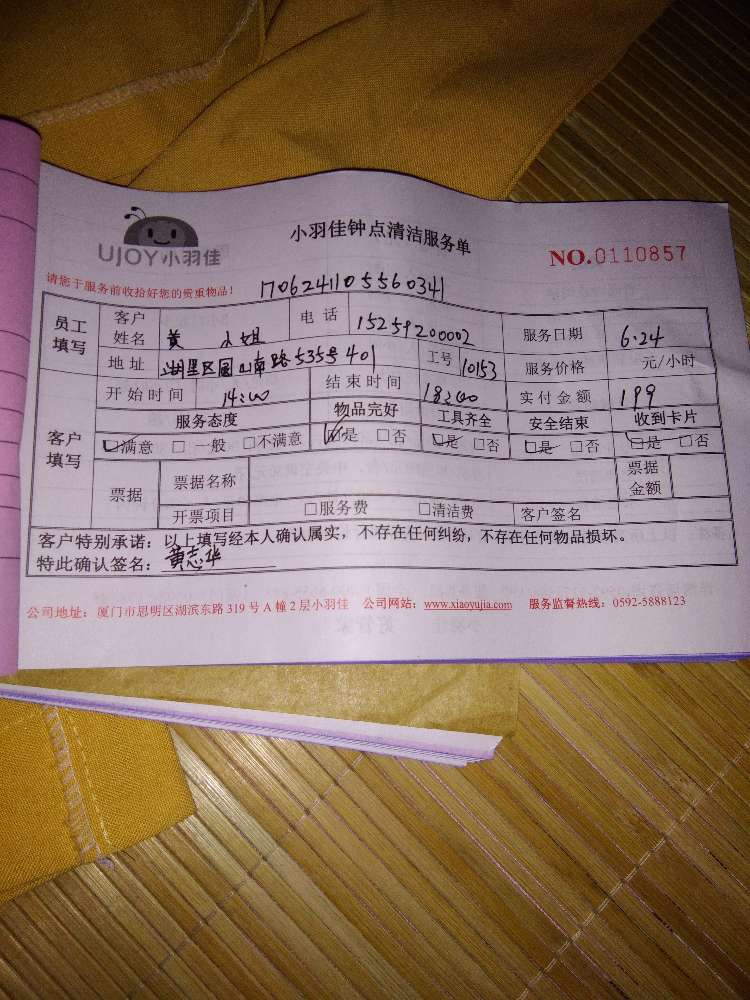 UJOY小羽佳
小羽佳钟点清洁服务单
NO.0110857
请您于服务前收拾好您的贵重物品！ 1706241105560341
员工填写 客户姓名 黄 小姐 电话 15259200002 服务日期 6.24
地址 湖里区圆山南路535号401 工号 10153 服务价格 元/小时
客户填写 开始时间 14:00 结束时间 18:00 实付金额 199
服务态度 物品完好 工具齐全 安全结束 收到卡片
☑满意 □一般 □不满意 ☑是 □否 ☑是 □否 ☑是 □否 ☑是 □否
票据 票据名称 票据金额
开票项目 □服务费 □清洁费 客户签名
客户特别承诺：以上填写经本人确认属实，不存在任何纠纷，不存在任何物品损坏。
特此确认签名：黄志华
公司地址：厦门市思明区湖滨东路319号A幢2层小羽佳 公司网站：www.xiaoyujia.com 服务监督热线：0592-5888123